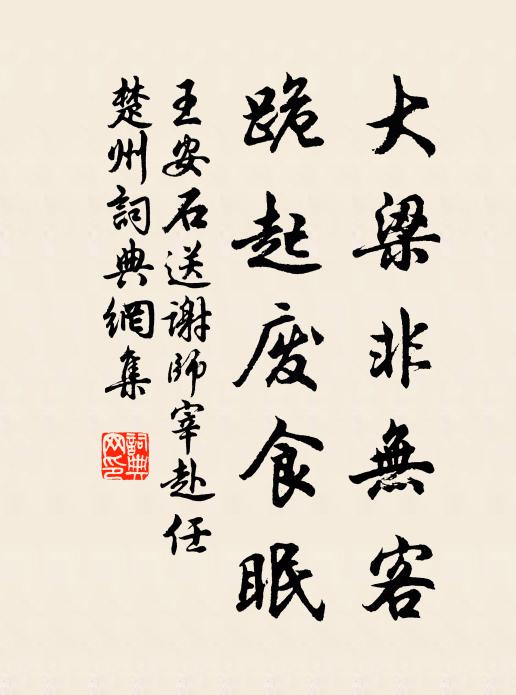 大梁非無客
跪起废食眠
王安石送謝師宰赴任
楚州詞典網集
詞典網印